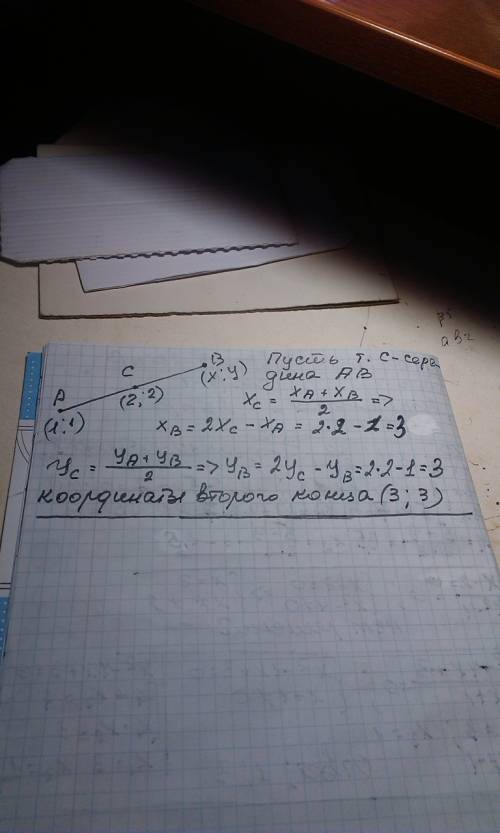 B
C
A
(x;y)
(2;2)
(1;1)
Пусть т. С-сере
дина AB
x_C = (x_A + x_B)/2 =>
x_B = 2x_C - x_A = 2·2 - 1 = 3
y_C = (y_A + y_B)/2 => y_B = 2y_C - y_B = 2·2 - 1 = 3
координаты второго конца (3; 3)